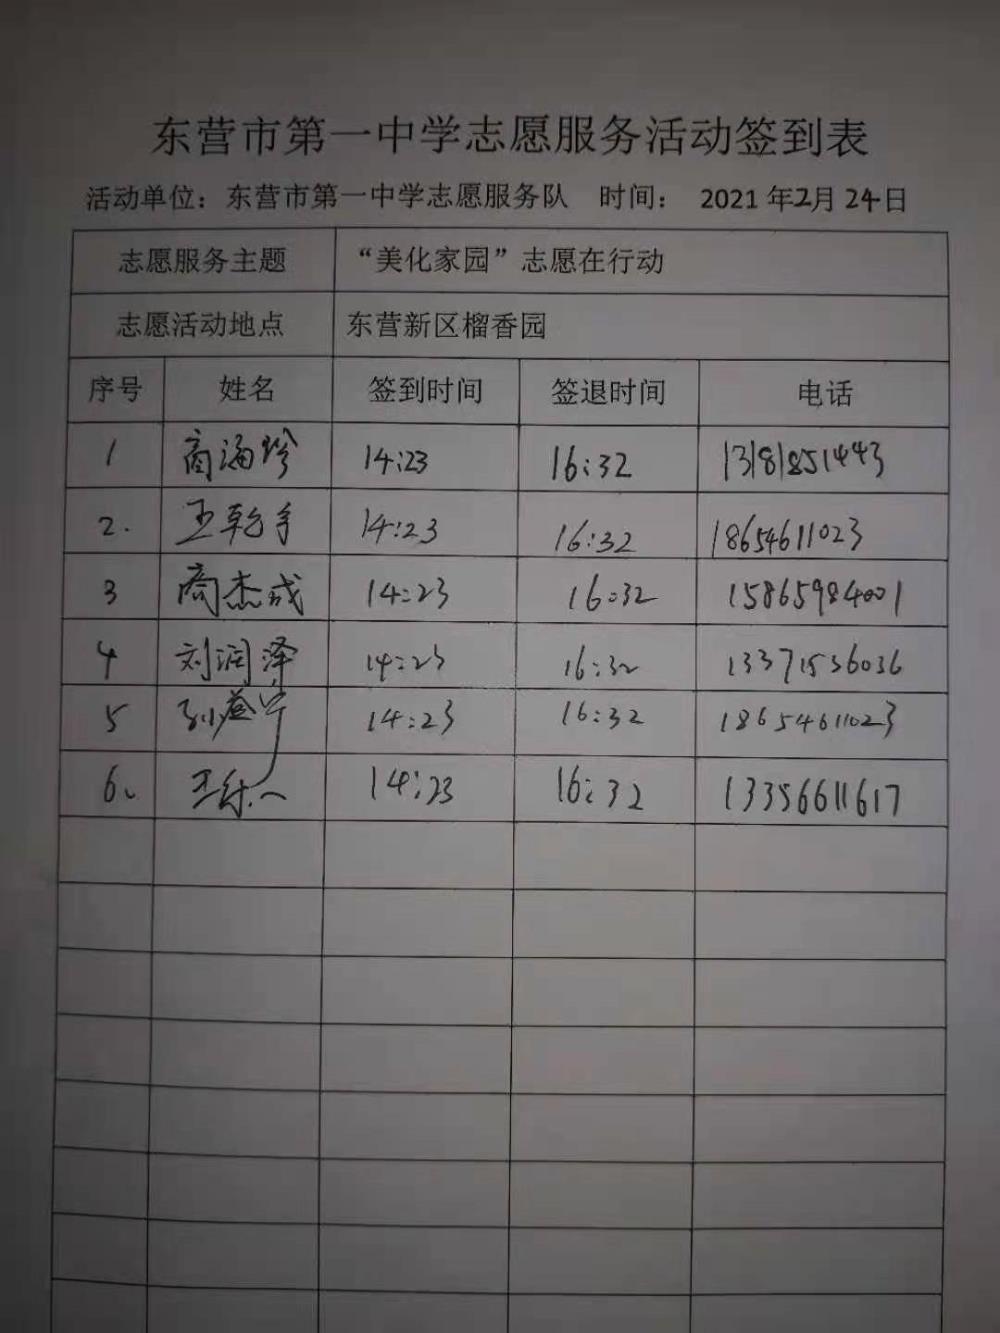 东营市第一中学志愿服务活动签到表
活动单位：东营市第一中学志愿服务队 时间： 2021年2月24日
志愿服务主题 “美化家园”志愿在行动
志愿活动地点 东营新区榴香园
序号 姓名 签到时间 签退时间 电话
1 商海珍 14:23 16:32 13181851443
2. 14:23 16:32 18654611023
3 商杰成 14:23 16:32 15865984001
4 刘润泽 14:23 16:32 13371536036
5 14:23 16:32 18654611023
6、 14:23 16:32 13356611617